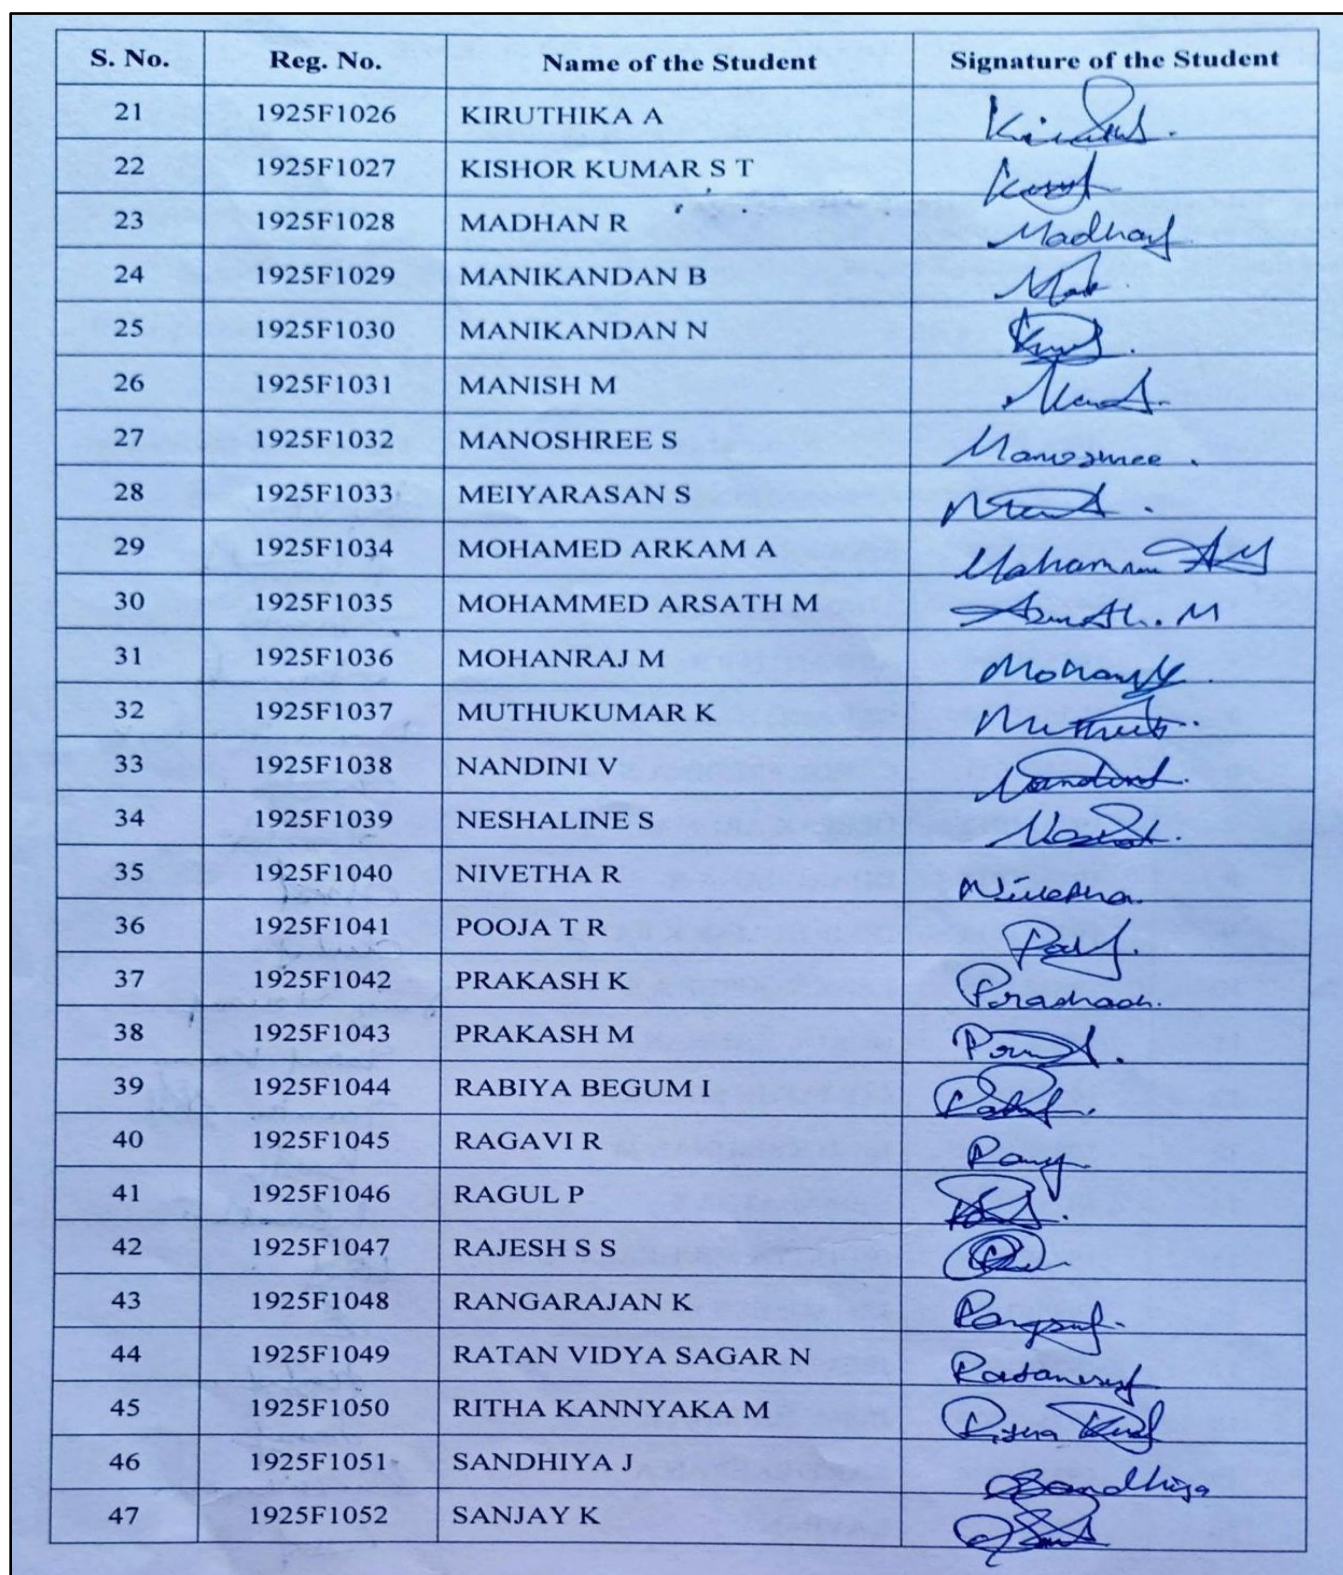 S. No. Reg. No. Name of the Student Signature of the Student
21 1925F1026 KIRUTHIKA A
22 1925F1027 KISHOR KUMAR S T
23 1925F1028 MADHAN R Madhan
24 1925F1029 MANIKANDAN B
25 1925F1030 MANIKANDAN N
26 1925F1031 MANISH M
27 1925F1032 MANOSHREE S Manoshree .
28 1925F1033 MEIYARASAN S
29 1925F1034 MOHAMED ARKAM A
30 1925F1035 MOHAMMED ARSATH M
31 1925F1036 MOHANRAJ M
32 1925F1037 MUTHUKUMAR K
33 1925F1038 NANDINI V
34 1925F1039 NESHALINE S
35 1925F1040 NIVETHA R Nivetha.
36 1925F1041 POOJA T R
37 1925F1042 PRAKASH K
38 1925F1043 PRAKASH M
39 1925F1044 RABIYA BEGUM I
40 1925F1045 RAGAVI R
41 1925F1046 RAGUL P
42 1925F1047 RAJESH S S
43 1925F1048 RANGARAJAN K
44 1925F1049 RATAN VIDYA SAGAR N
45 1925F1050 RITHA KANNYAKA M
46 1925F1051 SANDHIYA J Sandhiya
47 1925F1052 SANJAY K